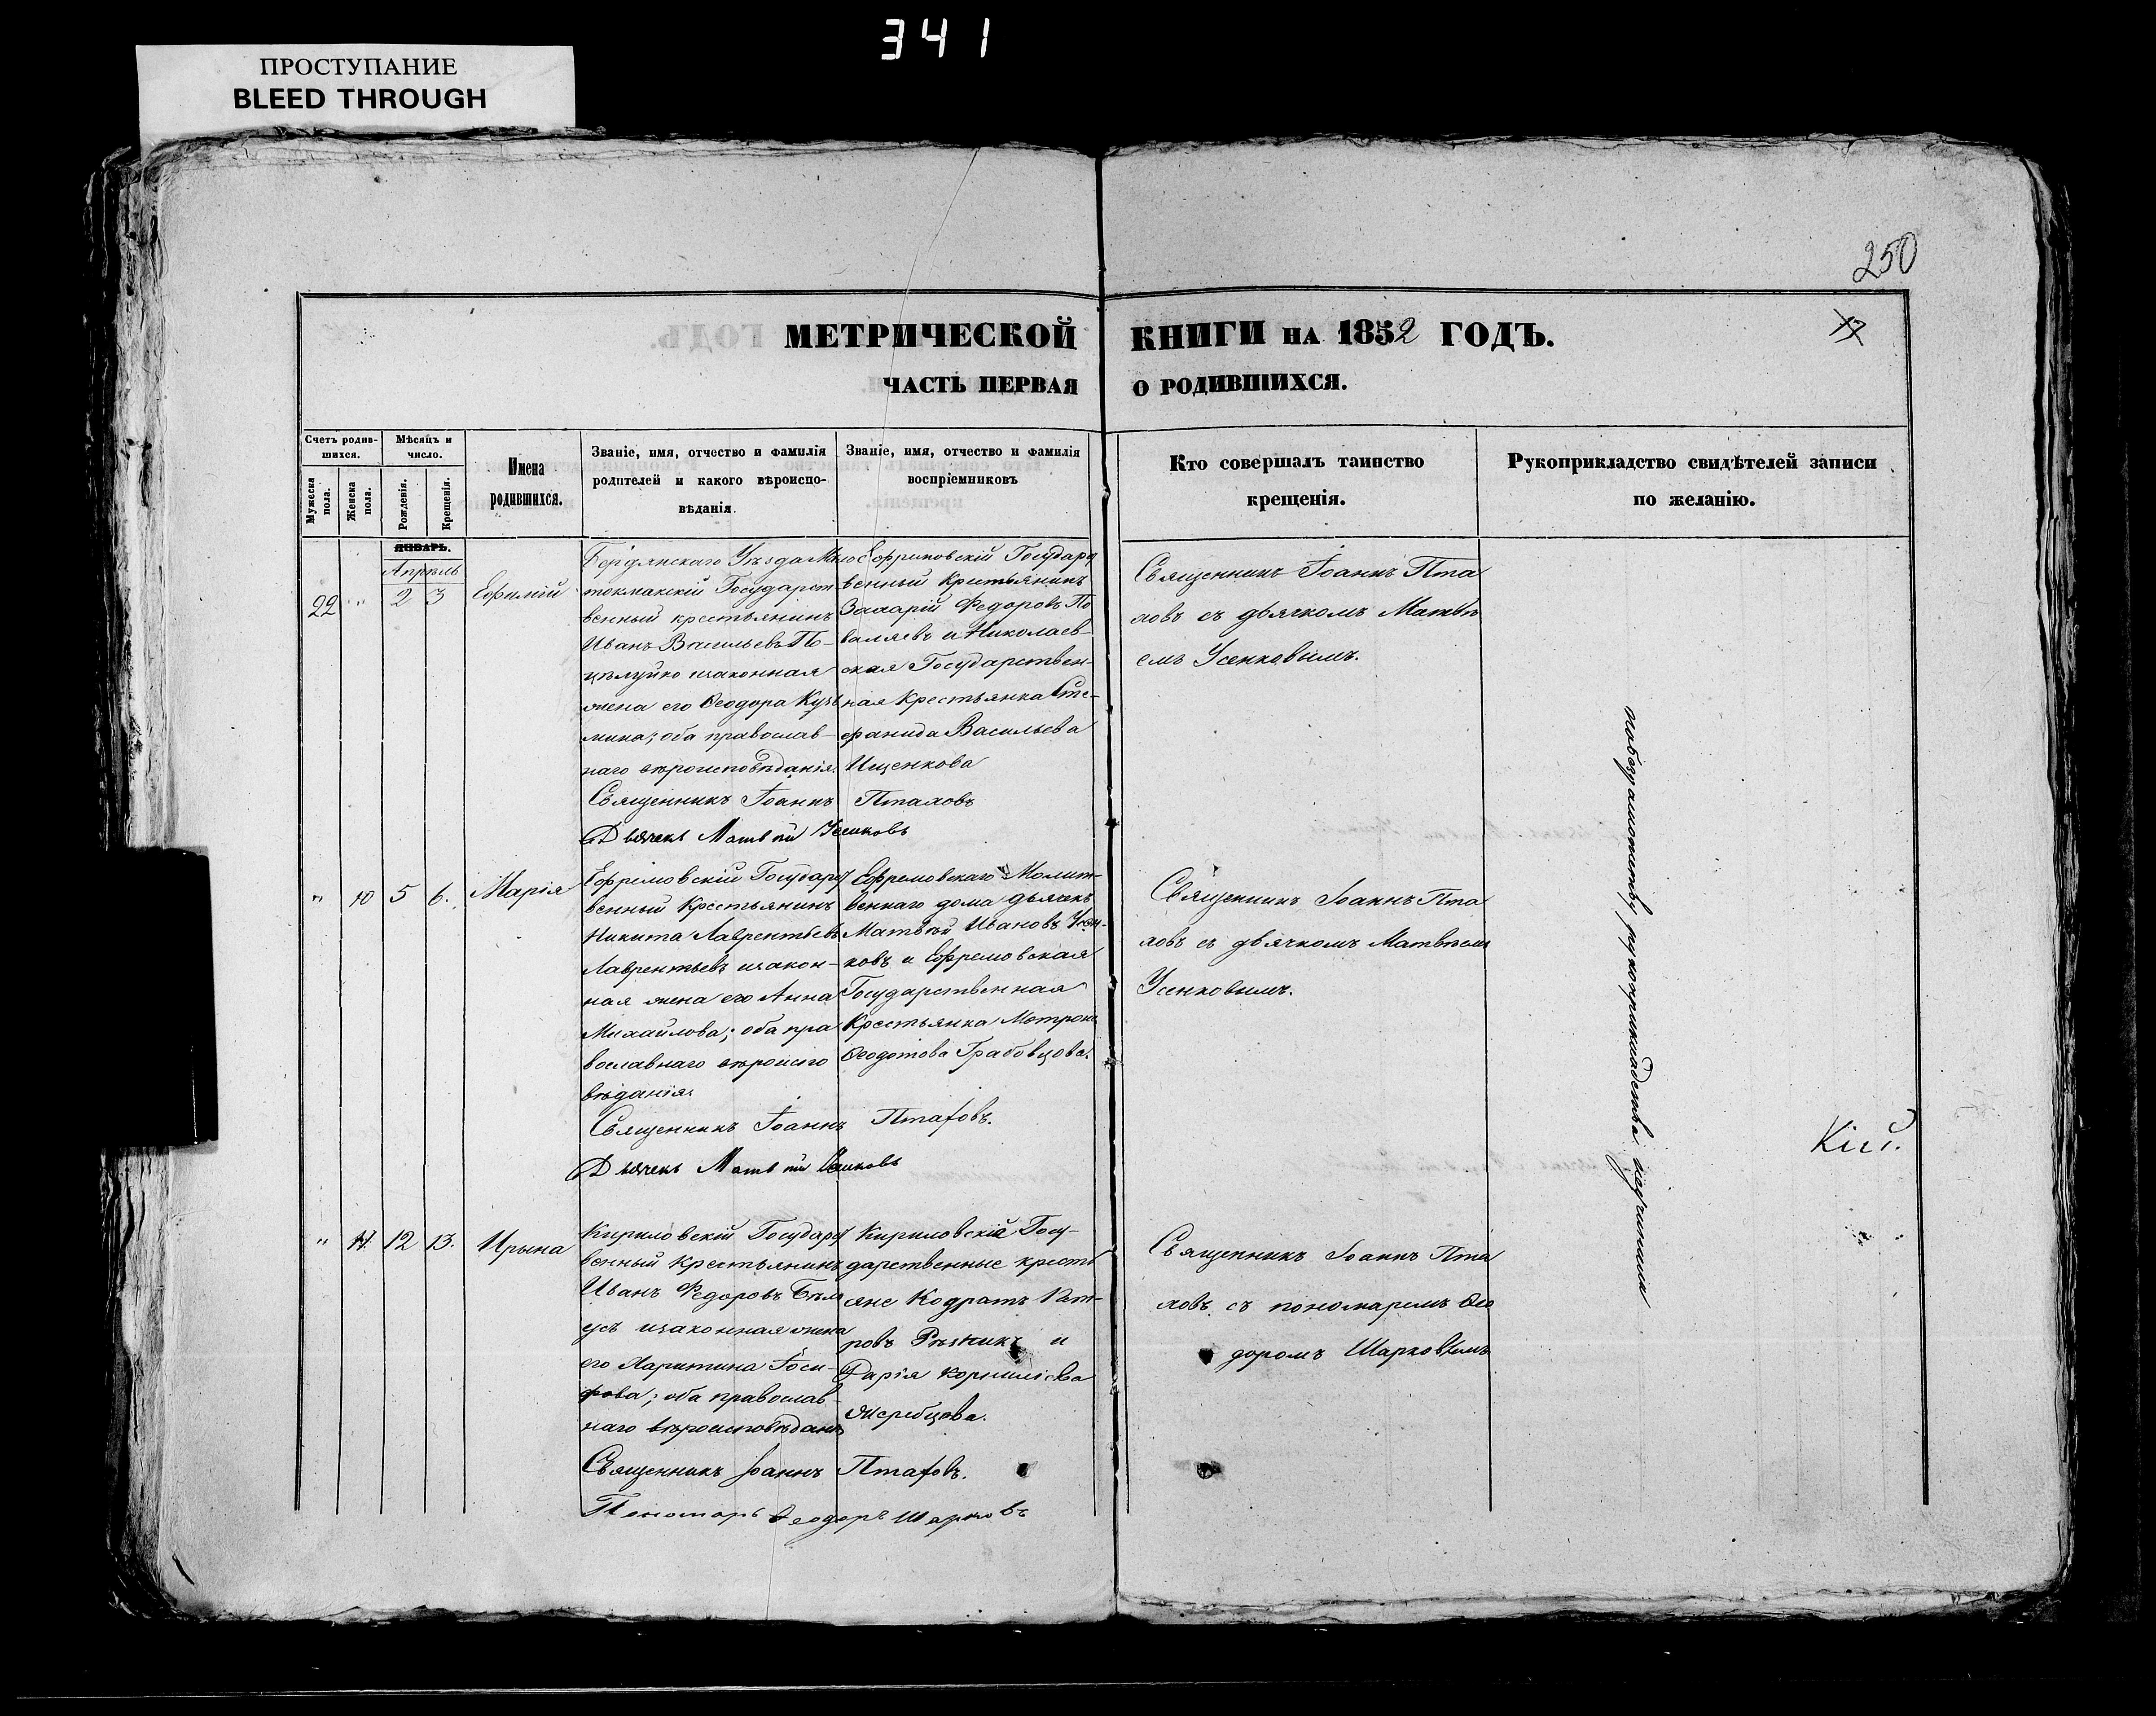 341
ПРОСТУПАНИЕ
BLEED THROUGH
250
МЕТРИЧЕСКОЙ КНИГИ НА 1852 ГОДЪ.
ЧАСТЬ ПЕРВАЯ О РОДИВШИХСЯ.
Счетъ родив-
шихся.
Мужеска
пола.
Женска
пола.
Мѣсяцъ и
число.
Рожденія.
Крещенія.
Имена
родившихся.
Званіе, имя, отчество и фамилія
родителей и какого вѣроиспо-
вѣданія.
Званіе, имя, отчество и фамилія
воспріемниковъ
Кто совершалъ таинство
крещенія.
Рукоприкладство свидѣтелей записи
по желанію.
ЯНВАРЬ.
Апрѣль
22 " 2 3 Ефимій
Бердянскаго Уѣзда
токмакскій Государст
венный крестьянинъ
Иванъ Васильевъ По-
цѣлуйко изаконная
жена его Ѳеодора Кузь
мина; оба православ-
наго вѣроисповѣданія.
Священникъ Іоаннъ Птаховъ
Дьячекъ Матвѣй Усенковъ
Государст
венный Крестьянинъ
Захарій Федоровъ По
валяевъ и Николаев-
ская Государствен-
ная Крестьянка Сте-
фанида Васильева
Ищенкова
Священникъ Іоаннъ Пта
ховъ съ дьячкомъ Матвѣ
емъ Усенковымъ.
" 10 5 6. Марія
Ефремовскій Государст
венный Крестьянинъ
Никита Лаврентьевъ
Лаврентьевъ изакон-
ная жена его Анна
Михайлова; оба пра
вославнаго вѣроиспо
вѣданія.
Священникъ Іоаннъ Птаховъ.
Дьячекъ Матвѣй Усенковъ
Ефремовскаго Молит-
веннаго дома дьячекъ
Матвѣй Ивановъ Усен-
ковъ и Ефремовская
Государственная
Крестьянка Мотрона
Ѳеодотова Грабовцова.
Священникъ Іоаннъ Пта
ховъ съ дьячкомъ Матвѣемъ
Усенковымъ.
" 11. 12 13. Ирына
Кириловскій Государст
венный Крестьянинъ
Иванъ Федоровъ Бѣло
усъ изаконная жена
его Харитина Іоси-
фова; оба православ-
наго вѣроисповѣданія
Священникъ Іоаннъ Птаховъ.
Пономарь Ѳеодоръ Шарковъ
Кириловскіе Госу-
дарственные кресть
яне Кодратъ Пет-
ровъ Рѣзникъ и
Дарія Корниліева
Жеребцова.
Священникъ Іоаннъ Пта
ховъ съ пономаремъ Ѳео
доромъ Шарковымъ
рукоприкладства